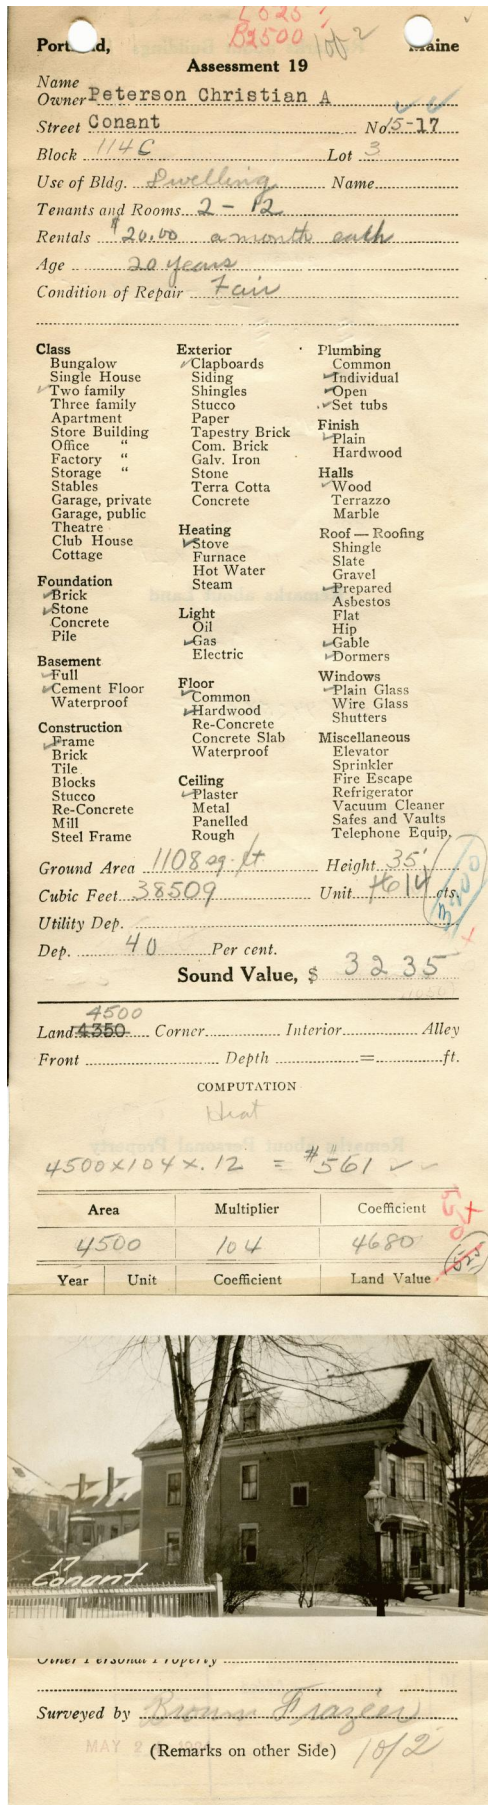 L 525
B2500
1 of 2
Portland, Maine
Assessment 19
Name
Owner Peterson Christian A
Street Conant No. 15-17
Block 114C Lot 3
Use of Bldg. Dwelling Name
Tenants and Rooms 2 - 12
Rentals $20.00 a month each
Age 20 years
Condition of Repair Fair
Class
Bungalow
Single House
✓Two family
Three family
Apartment
Store Building
Office "
Factory "
Storage "
Stables
Garage, private
Garage, public
Theatre
Club House
Cottage
Foundation
✓Brick
✓Stone
Concrete
Pile
Basement
✓Full
✓Cement Floor
Waterproof
Construction
✓Frame
Brick
Tile
Blocks
Stucco
Re-Concrete
Mill
Steel Frame
Exterior
✓Clapboards
Siding
Shingles
Stucco
Paper
Tapestry Brick
Com. Brick
Galv. Iron
Stone
Terra Cotta
Concrete
Heating
✓Stove
Furnace
Hot Water
Steam
Light
Oil
✓Gas
Electric
Floor
✓Common
✓Hardwood
Re-Concrete
Concrete Slab
Waterproof
Ceiling
✓Plaster
Metal
Panelled
Rough
Plumbing
Common
✓Individual
✓Open
✓Set tubs
Finish
✓Plain
Hardwood
Halls
✓Wood
Terrazzo
Marble
Roof — Roofing
Shingle
Slate
Gravel
✓Prepared
Asbestos
Flat
Hip
✓Gable
✓Dormers
Windows
✓Plain Glass
Wire Glass
Shutters
Miscellaneous
Elevator
Sprinkler
Fire Escape
Refrigerator
Vacuum Cleaner
Safes and Vaults
Telephone Equip.
Ground Area 1108 sq. ft Height 35'
Cubic Feet 38509 Unit 14 cts.
3200
Utility Dep.
Dep. 40 Per cent.
Sound Value, $ 3235
4500
Land 4350 Corner Interior Alley
Front Depth = ft.
COMPUTATION
Heat
4500 x 104 x .12 = $561 ✓ ✓
Area Multiplier Coefficient
4500 104 4680
550
525
Year Unit Coefficient Land Value
17
Conant
Other Personal Property
Surveyed by Brown Frazier
MAY 2
(Remarks on other Side) 1 of 2